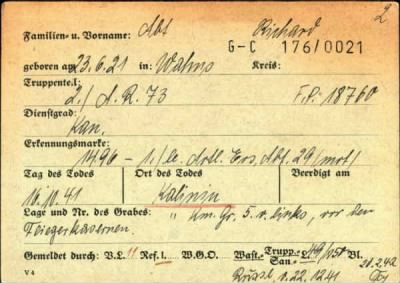 2
Familien- u. Vorname: Abt Richard
G-C 176/0021
geboren am 23.6.21 in: Wahns Kreis:
Truppenteil:
2./A.R. 73 F.P. 18760
Dienstgrad:
Kan.
Erkennungsmarke:
1496 - 1./le. Artl. Ers. Abt. 29 (mot)
Tag des Todes Ort des Todes Beerdigt am
16.10.41 Kalinin
Lage und Nr. des Grabes: " Km. Gr. 5. v. links, vor den
Fliegerkasernen.
Gemeldet durch: V.L. 11 Ref. 1. W.G.O. Wast.- Trupp.- San.- Bl.
v. 22.12.41 20.2.42
V 4